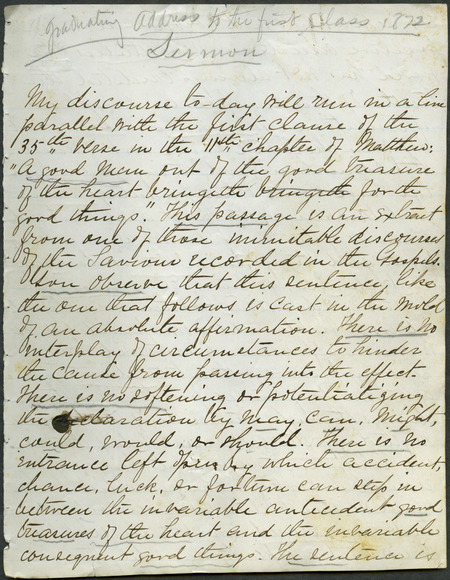 graduating address to the first Class 1872
Sermon
My discourse to-day will run in a line
parallel with the first clause of the
35th verse in the 11th chapter of Matthew:
"A good man out of the good treasure
of the heart bringeth bringeth forth
good things." This passage is an extract
from one of those inimitable discourses
of the Saviour recorded in the Gospels.
You observe that this sentence, like
the one that follows is cast in the mold
of an absolute affirmation. There is no
interplay of circumstances to hinder
the cause from passing into the effect.
There is no softening or potentializing
the declaration by may, can, might,
could, would, or should. There is no
entrance left open by which accident,
chance, luck, or fortune can step in
between the invariable antecedent good
treasures of the heart and the invariable
consequent good things. The sentence is